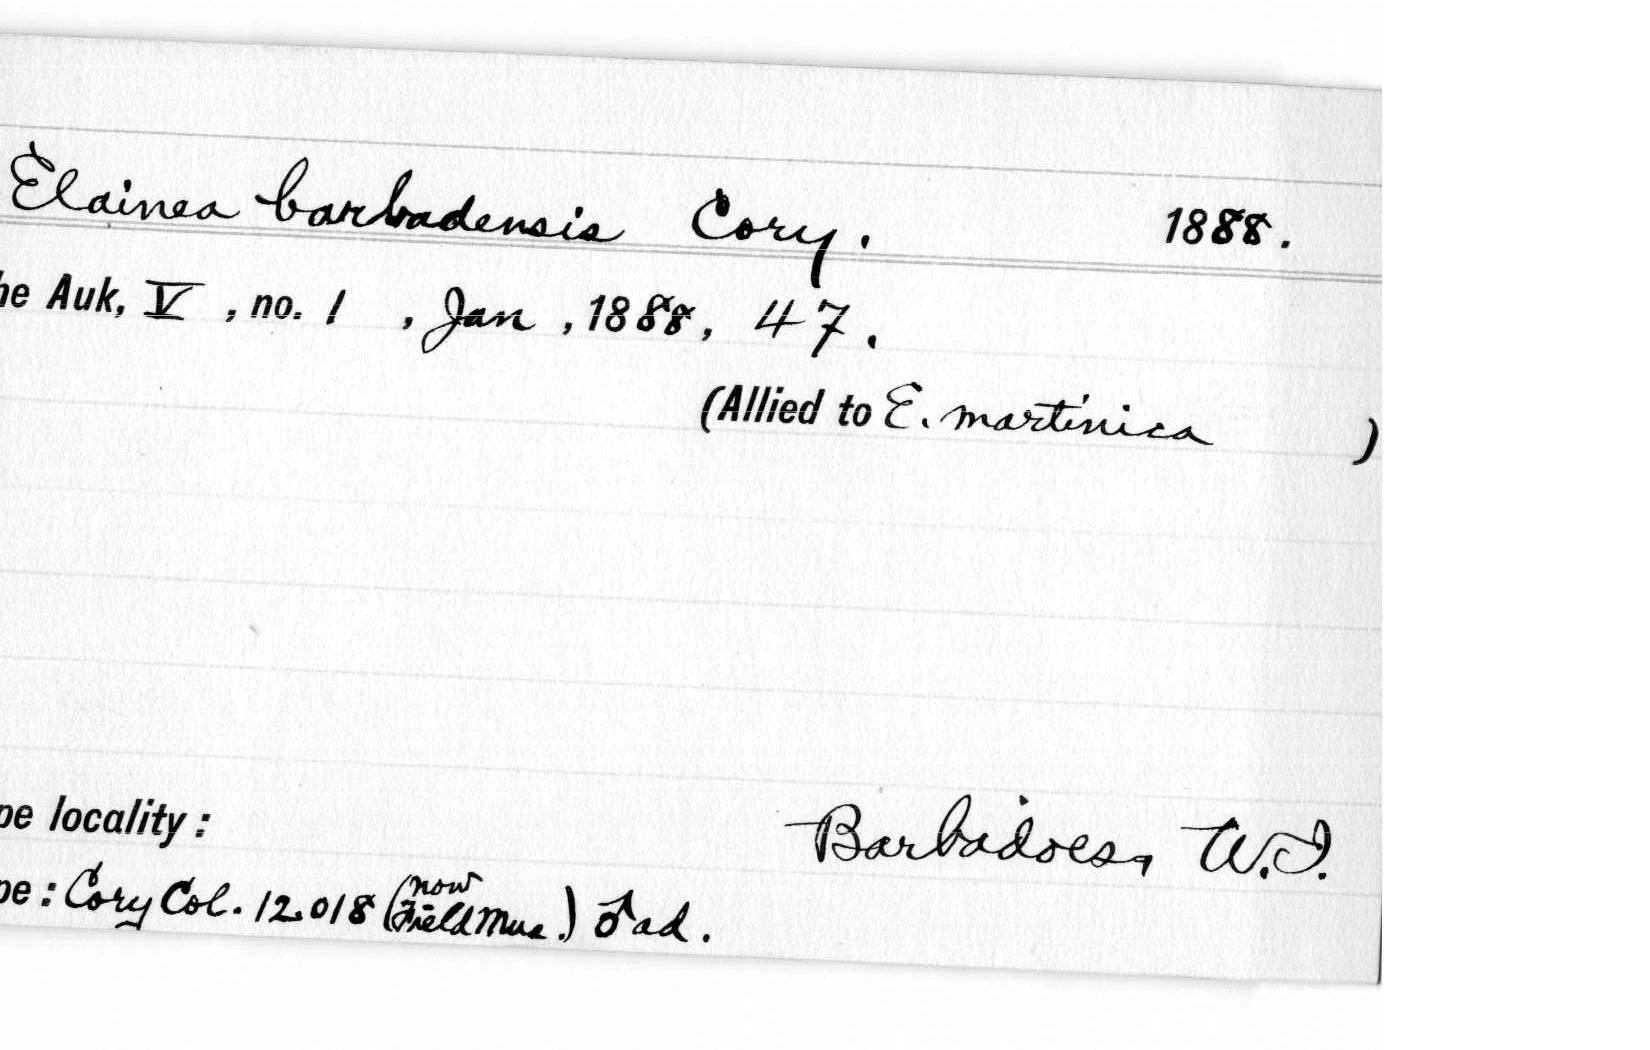 Elainea barbadensis Cory. 1888.
he Auk, V, no. 1, Jan, 1888, 47.
(Allied to E. martinica )
pe locality: Barbadoes, W.I.
pe: Cory Col. 12.018 (now Field Mus.) ♂ ad.